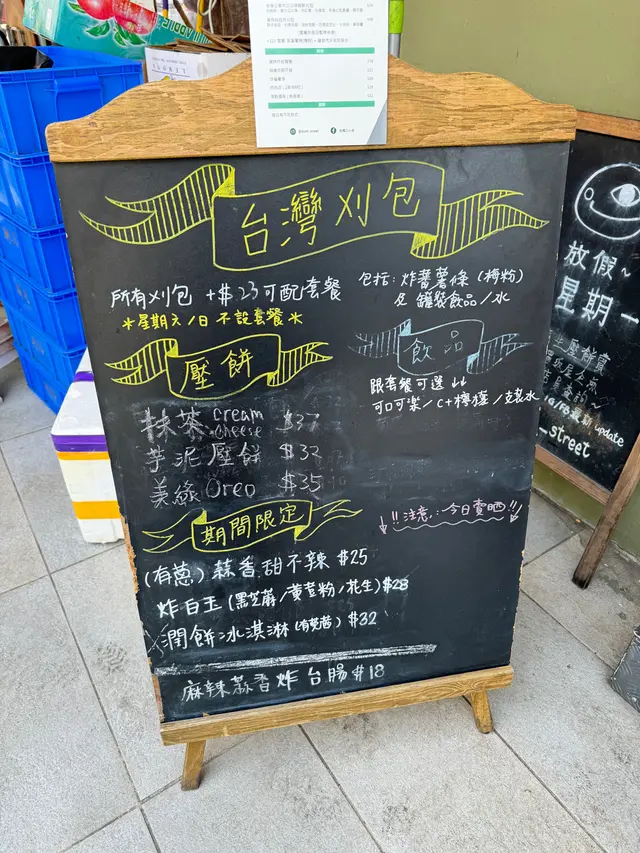 台灣刈包
所有刈包 +$23可配套餐
*星期六/日 不設套餐*
包括: 炸蕃薯條 (梅粉)
& 罐裝飲品/水
壓餅
抹茶 cream cheese $37
芋泥壓餅 $32
美綠 Oreo $35
飲品
跟套餐可選↓↓
可口可樂/C+檸檬/支裝水
期間限定
(有蔥) 蒜香甜不辣 $25
炸白玉 (黑芝麻/黃荳粉/花生) $28
潤餅冰淇淋 (有芫茜) $32
↓!!注意: 今日賣晒!!↓
麻辣蒜香炸台腸 $18
放假~
星期一
update
_street